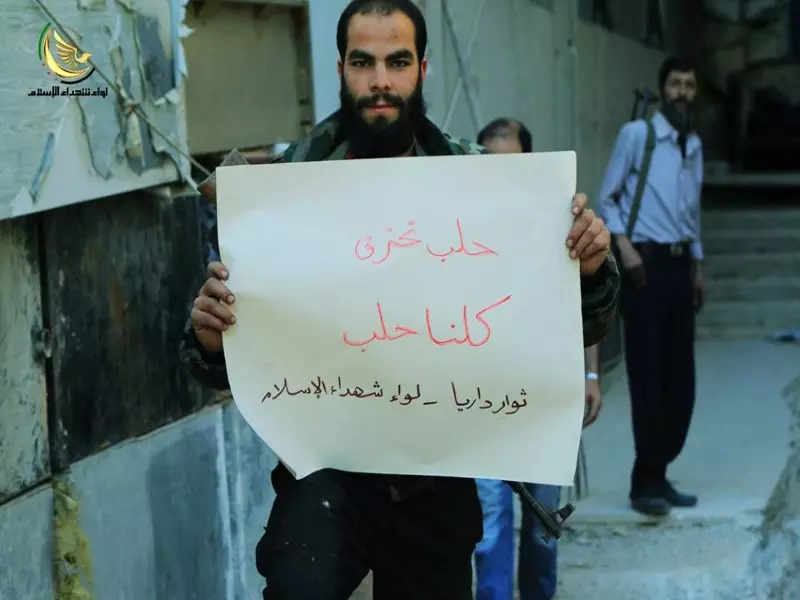 لواء شهداء الإسلام
حلب تحترق
كلنا حلب
ثوار داريا - لواء شهداء الإسلام